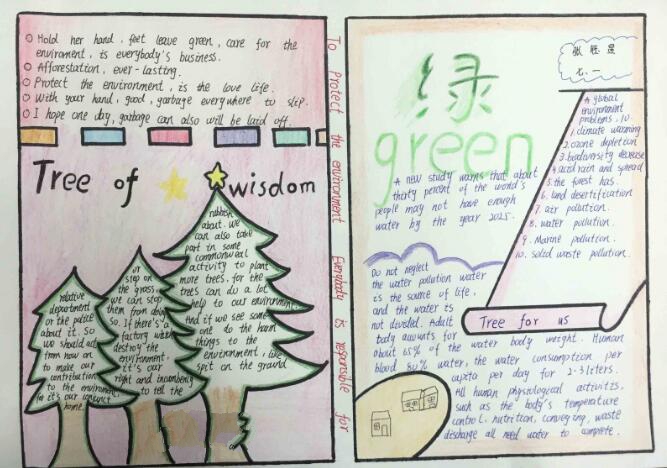 Hold her hand, feet leave green, care for the
enviroment, is everybody's business.
Afforestation, ever-lasting.
Protect the environment, is the love life.
With your hand, good, garbage everywhere to slip.
I hope one day, garbage can also will be laid off.
Tree of wisdom
rubbish
about. We
can also take
part in some
commonweal
activity to plant
more trees, for the
trees can do a lot
help to our environment
And if we see some
one do the harm
things to the
environment, like
spit on the ground
or
step on
the grass,
we can stop
them from doing
so. If there's a
factory with
destroy the
environment
it's our
right and incumbency
to tell the
relative
department
or the police
about it. So
we should act
from now on
to make our
contribution
to the enviroment,
for it's our conjunct
home.
To Protect the environment Everybody is responsible for
绿
green
张胜是
七、一
A new study warns that about
thirty percent of the world's
people may not have enough
water by the year 2025.
A global
environment
problems, 10.
1. climate warming
2. ozone depletion
3. biodiversity decrease
4. acid rain and spread
5. the forest has.
6. land desertification
7. air pollution.
8. water pollution.
9. Marine pollution.
10. solid waste pollution.
Tree for us
Do not neglect
the water pollution water
is the source of life,
and the water is
not divided. Adult
body accounts for
about 65% of the water body weight. Human
blood 80% water, the water consumption per
capita per day for 2-3 liters.
All human physiological activities.
such as the body's temperature
control. nutrition, conveying, waste
discharge all need water to complete.